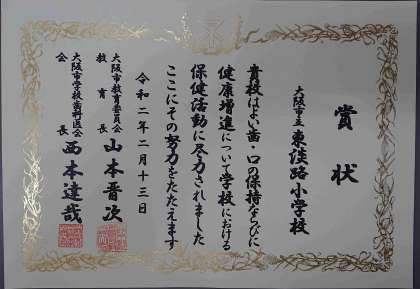 賞状
大阪市立東淡路小学校
貴校はよい歯・口の保持ならびに
健康増進について学校における
保健活動に尽力されました
ここにその努力をたたえます
令和二年二月十三日
大阪市教育委員会
教育長 山本晋次
大阪市学校歯科医会
会長 西本達哉